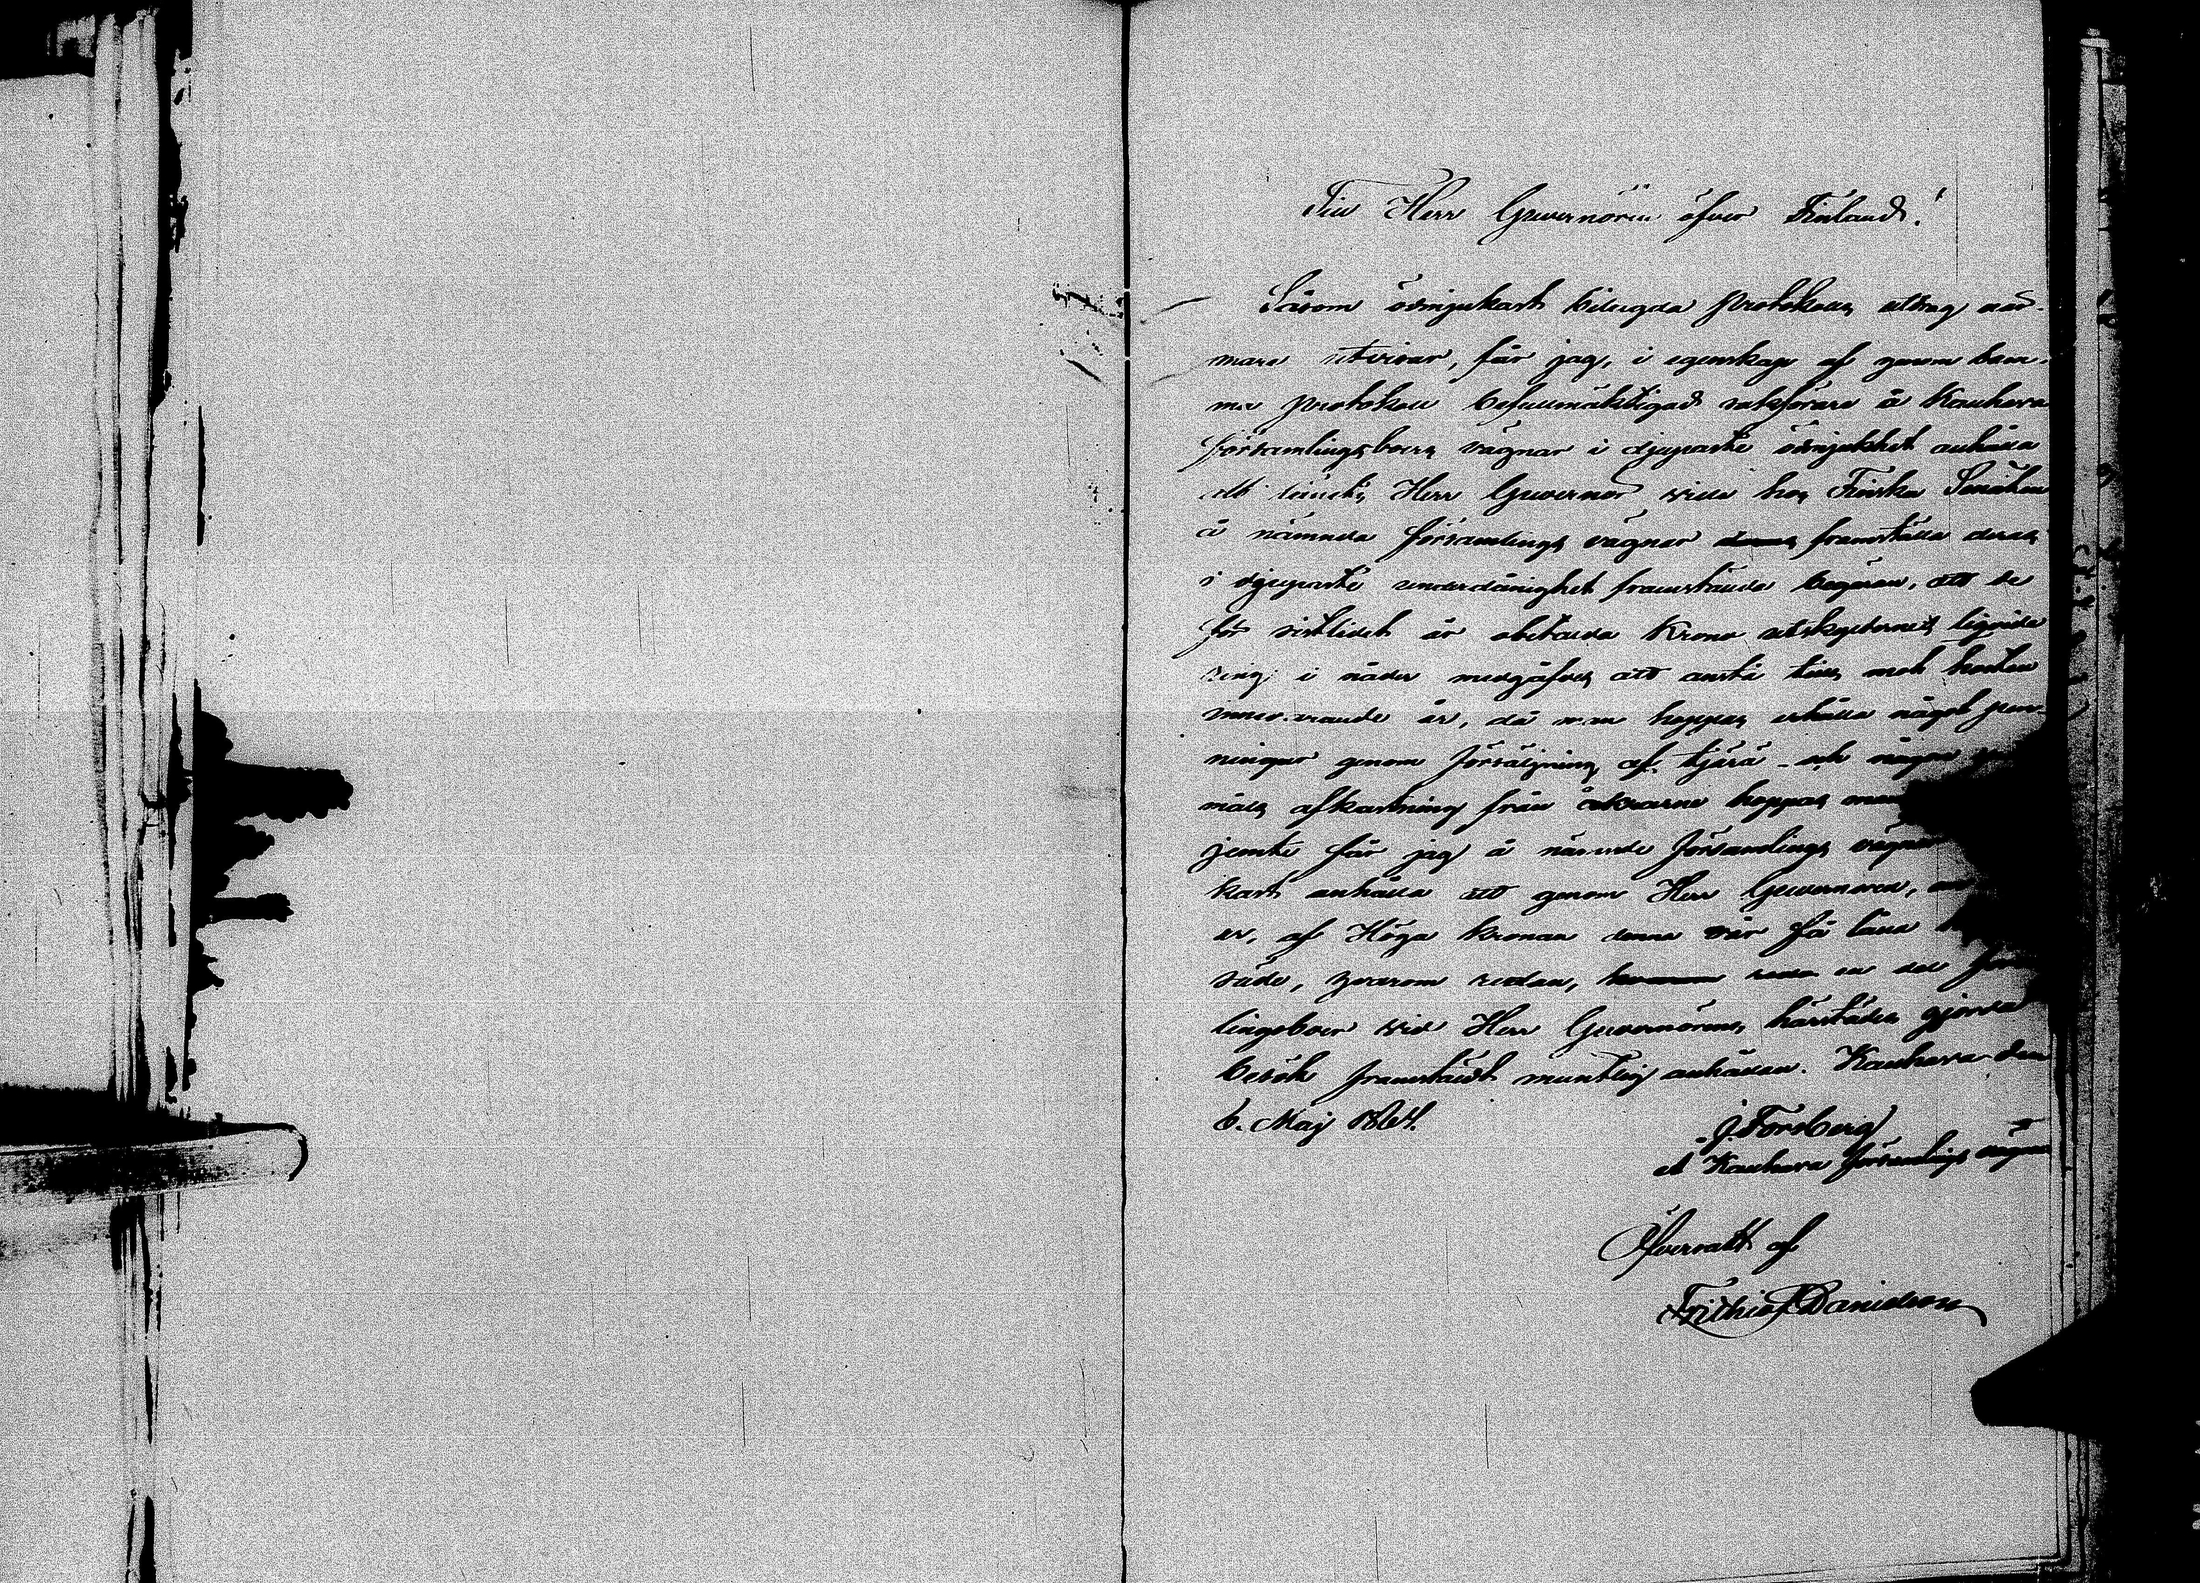 Till Herr Guvernören öfver Finland!
Såsom ödmjukast bilagda Protokolls utdrag när-
mare utvisar, får jag, i egenskap af genom sam-
ma protokoll befullmäktigad sakförare å Kauhava
församlingsboers vägnar i djupaste ödmjukhet anhålla
att Herr Guvernör ville hos Finska Senaten
å nämnda församlings vägnar framställa deras
i djupaste underdånighet framstälda begäran, att de
för sistlidet år obetalda Krono utskyldernas liqvide
ring i nåder medgåfves att anstå tills mot hösten
innevarande år, då man hoppas erhålla något pen-
ningar genom försäljning af tjära och någon
måls afkastning från åkrarne hoppas
jemte får jag å nämnde församlings vägnar
kast anhålla att genom Herr Guvernören,
af Höga Kronan denna vår få låna
säde, hvarom redan, redan en del försam
lingsboer vid Herr Guvernörens härstädes gjorda
besök framstäldt muntlig anhållan. Kauhava den
6. Maj 1864.
J. Forsberg
å Kauhava församlings vägnar
Öfversatt af
Frithiof Danielson